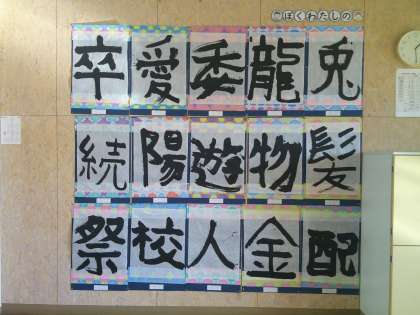 ぼくわたしの
卒愛委龍兎
続陽遊物髪
祭校人金配